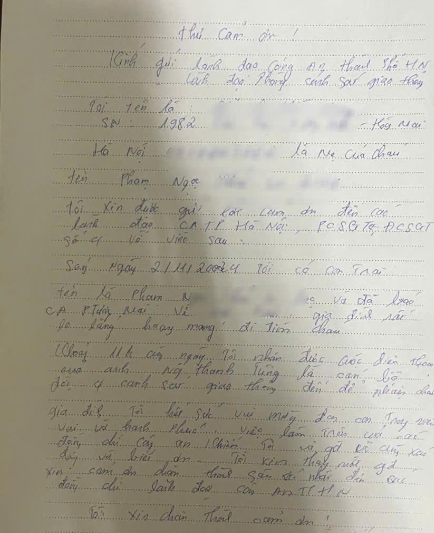 Thư cảm ơn !
Kính gửi lãnh đạo công an thành phố HN
lãnh đạo phòng cảnh sát giao thông
Tôi tên là :
SN : 1982 Hoàng Mai
Hà Nội là mẹ của cháu
tên Phạm Ngọc
Tôi xin được gửi lời cảm ơn đến các
lãnh đạo CATP Hà Nội, PCSGT, ĐCSGT
số 4 về việc sau :
Sáng ngày 2/11/2024 tôi có con trai
tên là Phạm N và đã
CA Mai Vì gia đình rất
lo lắng đi tìm cháu
11h cùng ngày, Tôi nhận được cuộc điện thoại
của anh Ng Thanh Tùng là cán bộ
đội 4 cảnh sát giao thông đến để nhận cháu
gia đình Tôi hết sức vui mừng đón con trai
vui và hạnh phúc. việc làm trên của các
đồng chí công an khiến Tôi và gđ vô cùng xúc
động và biết ơn. Tôi gđ
xin cảm ơn chân thành sâu sắc nhất đến các
đồng chí lãnh đạo công an TPHN
Tôi xin chân thành cảm ơn !